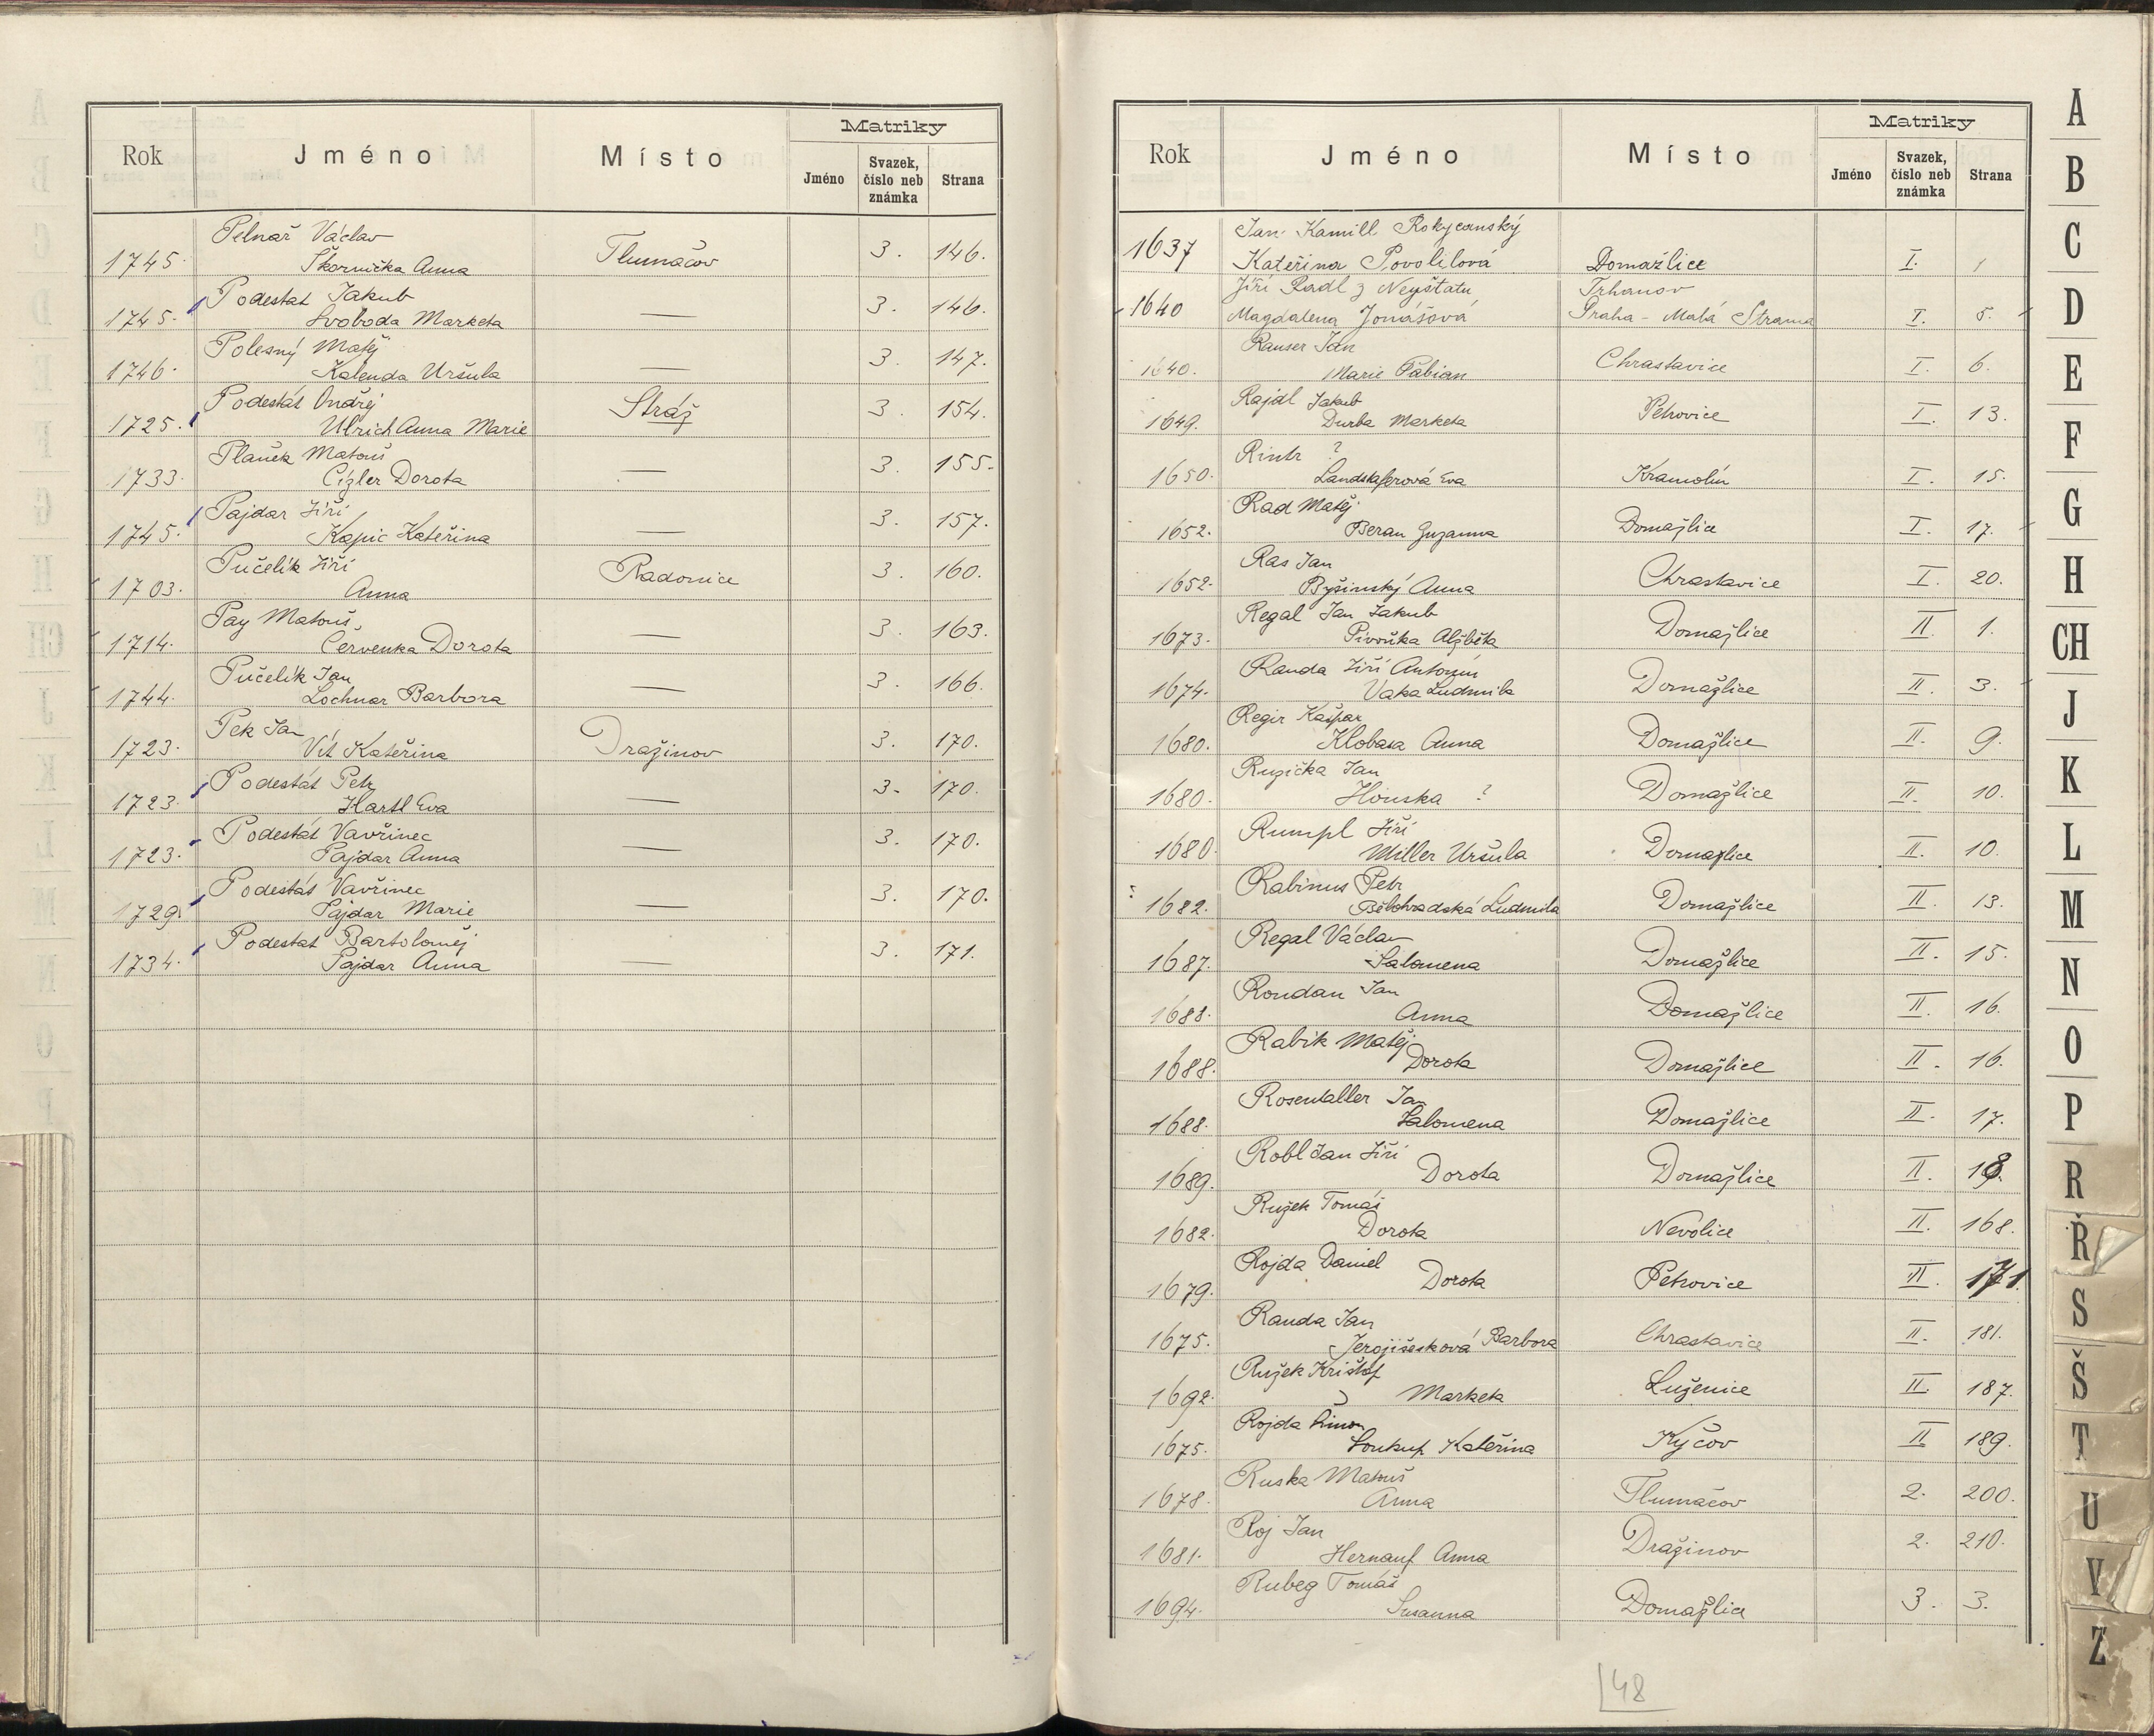 Matriky
Rok Jméno Místo Jméno Svazek, číslo neb známka Strana
Pelnař Václav
1745. Škornička Anna Tlumačov 3. 146.
Podestat Jakub
1745. Svoboda Marketa — 3. 146.
Polesný Matěj
1746. Kalenda Uršula — 3. 147.
Podestát Ondřej
1725. Ulrich Anna Marie Stráž 3. 154.
Planěk Matouš
1733. Cizler Dorota — 3. 155.
Pajdar Jiří
1745. Kapic Kateřina — 3. 157.
Pučelík Jiří
1703. Anna Radonice 3. 160.
Pay Matouš
1714. Červenka Dorota — 3. 163.
Pučelík Jan
1744. Lochnar Barbora — 3. 166.
Pek Jan
1723. Vít Kateřina Dražinov 3. 170.
Podestát Petr
1723. Hartl Eva — 3. 170.
Podestát Vavřinec
1723. Pajdar Anna — 3. 170.
Podestát Vavřinec
1729. Pajdar Marie — 3. 170.
Podestat Bartoloměj
1734. Pajdar Anna — 3. 171.
Matriky
Rok Jméno Místo Jméno Svazek, číslo neb známka Strana
Jan Kamill Rokycanský
1637 Kateřina Povolilová Domažlice I. 1
Jiří Radl z Neyštatu Trhanov
1640 Magdalena Jonášová Praha - Malá Strana I. 5.
Rauser Jan
1640. Marie Fabian Chrastavice I. 6.
Rajdl Jakub
1649. Durba Marketa Petrovice I. 13.
Rintr ?
1650. Eva Kramolín I. 15.
Rad Matěj
1652. Beran Zuzanna Domažlice I. 17.
Ras Jan
1652. Byšinský Anna Chrastavice I. 20.
Regal Jan Jakub
1673. Pivoňka Alžběta Domažlice II. 1.
Randa Jiří Antonín
1674. Vaka Ludmila Domažlice II. 3.
Regir Kašpar
1680. Klobasa Anna Domažlice II. 9.
Ruzička Jan
1680. Houska ? Domažlice II. 10.
Rumpl Jiří
1680. Miller Uršula Domažlice II. 10.
Rabinus Petr
1682. Bělohradská Ludmila Domažlice II. 13.
Regal Václav
1687. Salomena Domažlice II. 15.
Roudan Jan
1688. Anna Domažlice II. 16.
Rabik Matěj
1688. Dorota Domažlice II. 16.
Rosentaller Jan
1688. Salomena Domažlice II. 17.
Robl Jan Jiří
1689. Dorota Domažlice II. 18.
Ružek Tomáš
1682. Dorota Nevolice II. 168.
Rojda Daniel
1679. Dorota Petrovice II. 171.
Randa Jan
1675. Barbora Chrastavice II. 181.
Ružek Krištof
1692. Marketa Luženice II. 187.
Rojda Šimon
1675. Soukup Kateřina Kyčov II 189.
Ruska Matouš
1678. Anna Tlumačov 2. 200.
Roj Jan
1681. Hernauf Anna Dražinov 2. 210.
Rubeg Tomáš
1694. Susanna Domažlice 3. 3.
48
A
B
C
D
E
F
G
H
CH
J
K
L
M
N
O
P
R
Ř
S
Š
T
U
V
Z